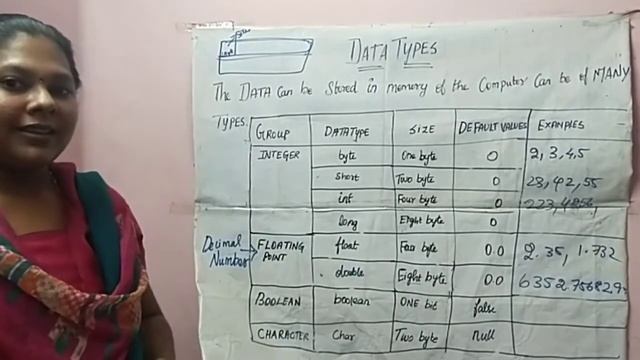 DATA TYPES
The DATA can be stored in memory of the Computer Can be of MANY
TYPES.
GROUP DATATYPE SIZE DEFAULT VALUES EXAMPLES
INTEGER byte One byte 0 2,3,4,5
short Two byte 0 23,42,55
int Four byte 0
long Eight byte 0
Decimal Number FLOATING POINT float Four byte 0.0 2.35, 1.732
double Eight byte 0.0
BOOLEAN boolean ONE bit false
CHARACTER Char Two byte null